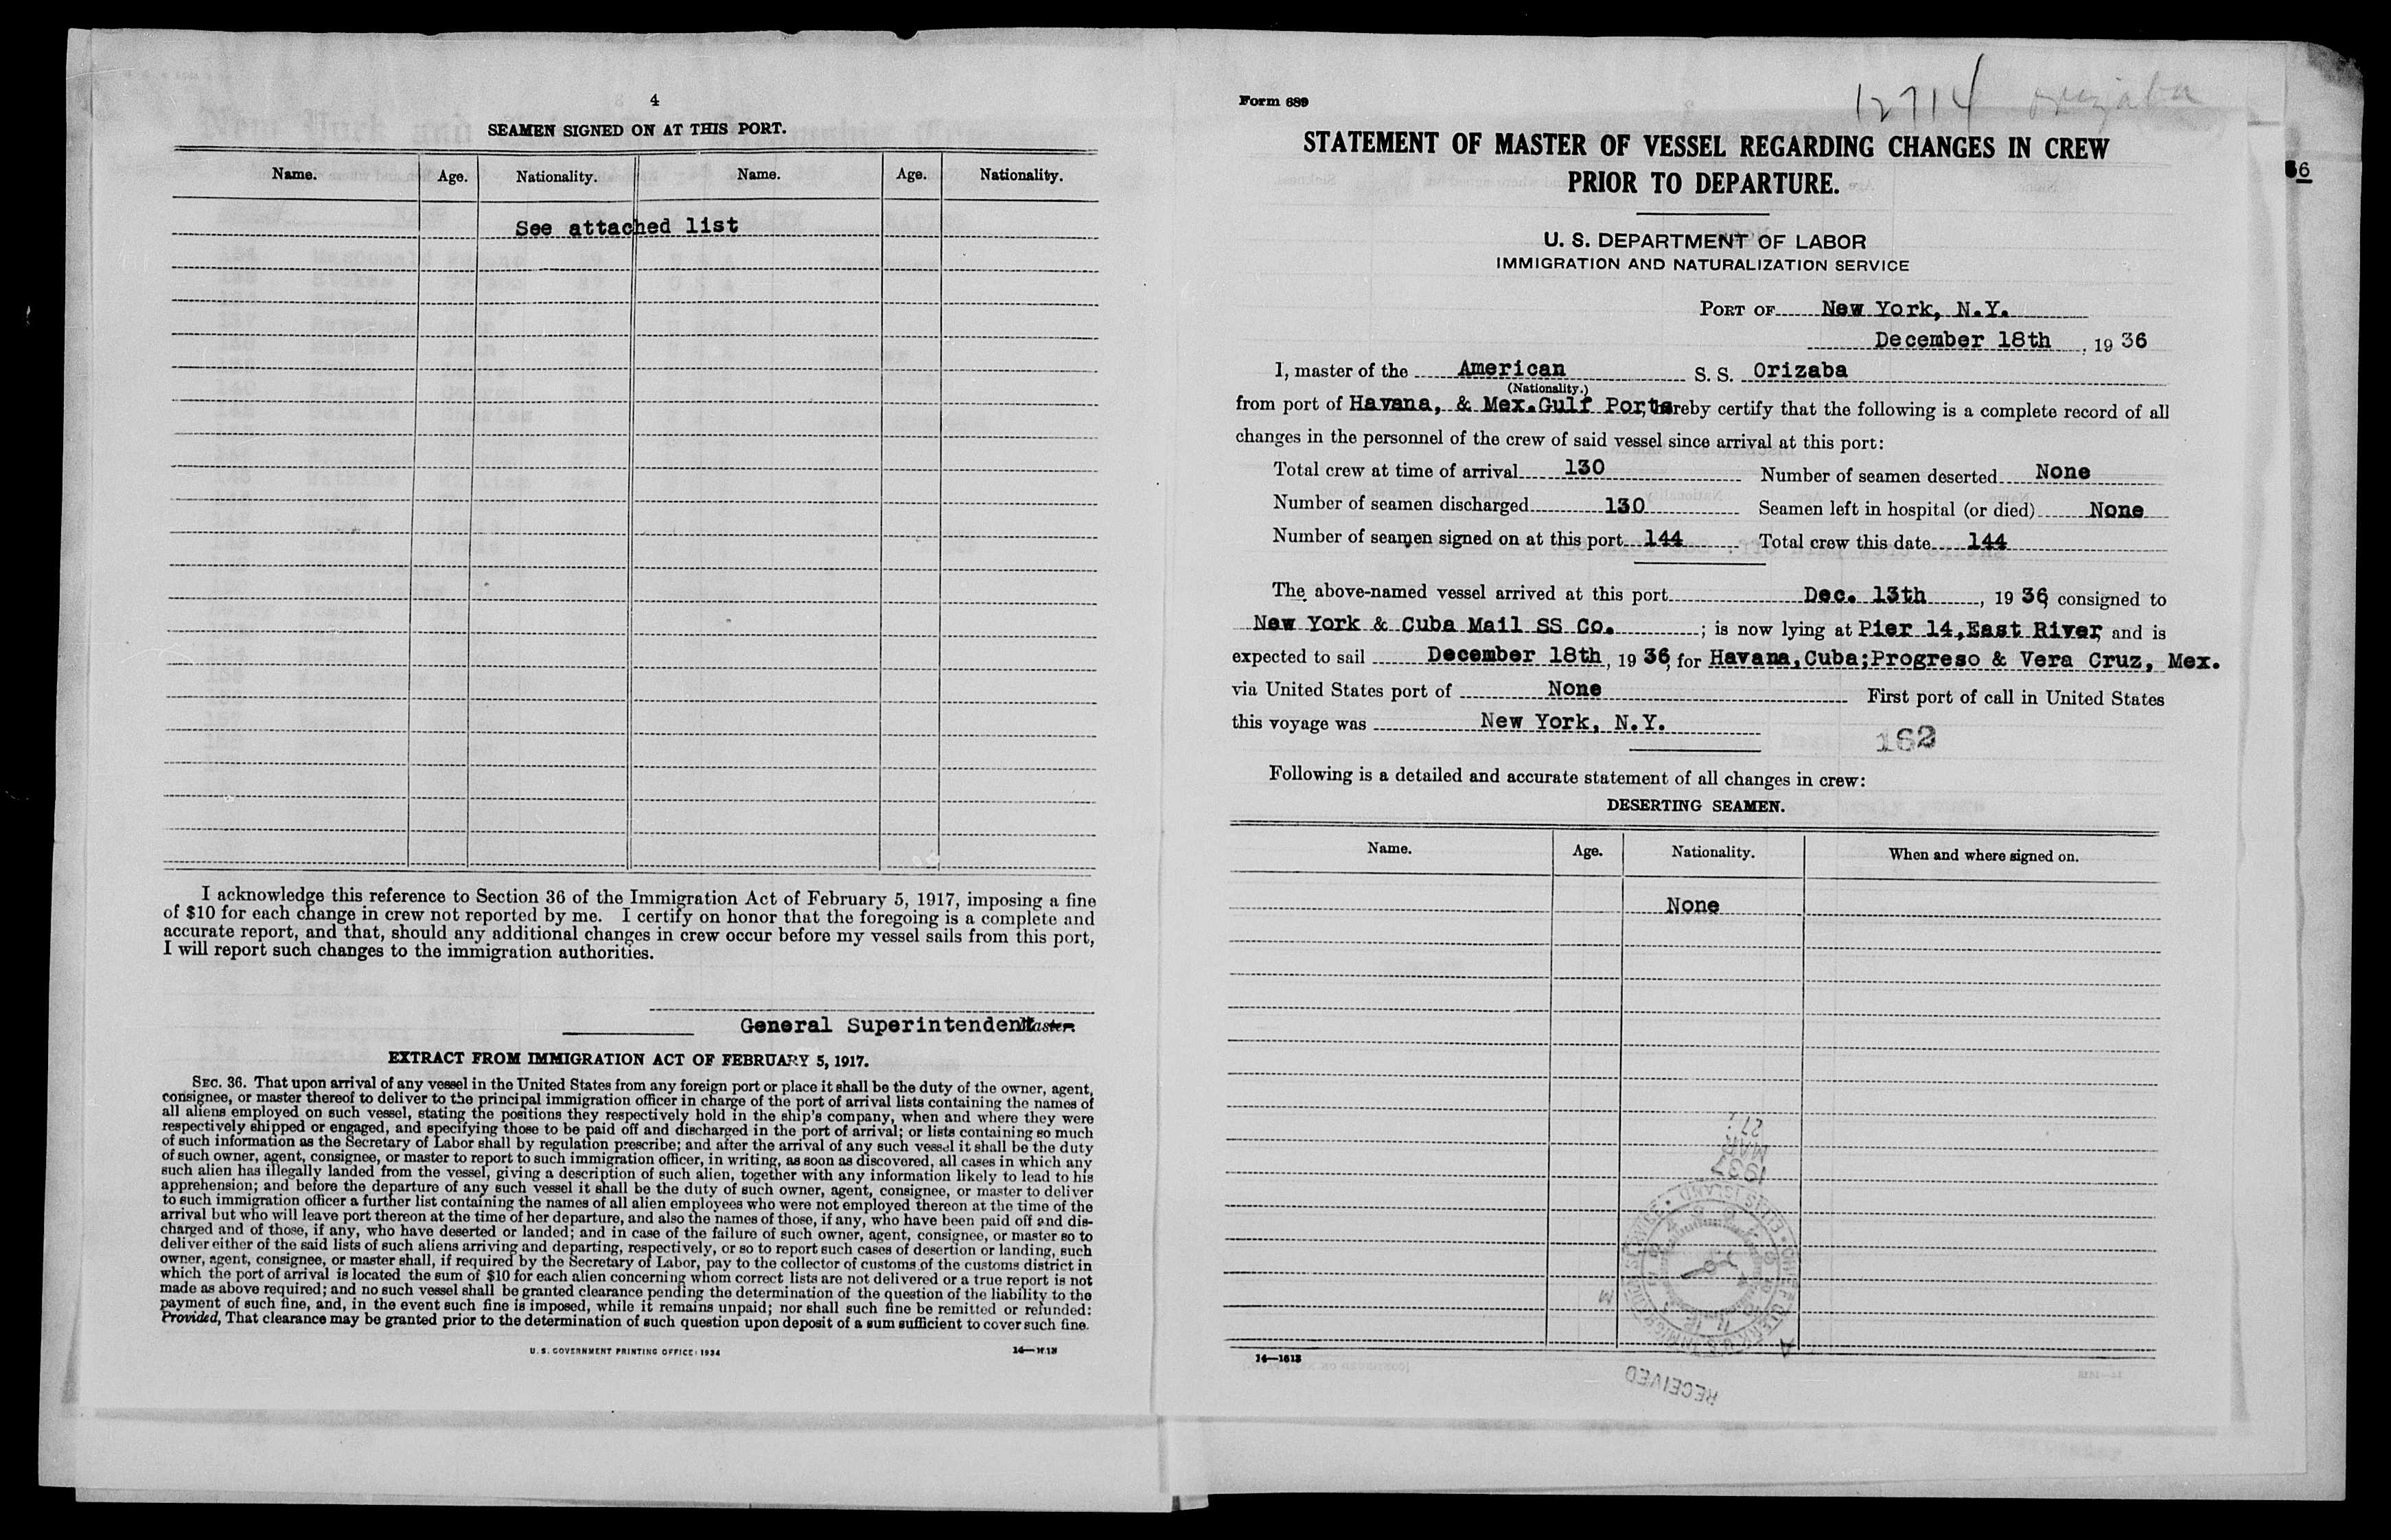 4
SEAMEN SIGNED ON AT THIS PORT.
Name. Age. Nationality. Name. Age. Nationality.
See attached list
I acknowledge this reference to Section 36 of the Immigration Act of February 5, 1917, imposing a fine
of $10 for each change in crew not reported by me. I certify on honor that the foregoing is a complete and
accurate report, and that, should any additional changes in crew occur before my vessel sails from this port,
I will report such changes to the immigration authorities.
General Superintendent Master.
EXTRACT FROM IMMIGRATION ACT OF FEBRUARY 5, 1917.
SEC. 36. That upon arrival of any vessel in the United States from any foreign port or place it shall be the duty of the owner, agent,
consignee, or master thereof to deliver to the principal immigration officer in charge of the port of arrival lists containing the names of
all aliens employed on such vessel, stating the positions they respectively hold in the ship's company, when and where they were
respectively shipped or engaged, and specifying those to be paid off and discharged in the port of arrival; or lists containing so much
of such information as the Secretary of Labor shall by regulation prescribe; and after the arrival of any such vessel it shall be the duty
of such owner, agent, consignee, or master to report to such immigration officer, in writing, as soon as discovered, all cases in which any
such alien has illegally landed from the vessel, giving a description of such alien, together with any information likely to lead to his
apprehension; and before the departure of any such vessel it shall be the duty of such owner, agent, consignee, or master to deliver
to such immigration officer a further list containing the names of all alien employees who were not employed thereon at the time of the
arrival but who will leave port thereon at the time of her departure, and also the names of those, if any, who have been paid off and dis-
charged and of those, if any, who have deserted or landed; and in case of the failure of such owner, agent, consignee, or master so to
deliver either of the said lists of such aliens arriving and departing, respectively, or so to report such cases of desertion or landing, such
owner, agent, consignee, or master shall, if required by the Secretary of Labor, pay to the collector of customs of the customs district in
which the port of arrival is located the sum of $10 for each alien concerning whom correct lists are not delivered or a true report is not
made as above required; and no such vessel shall be granted clearance pending the determination of the question of the liability to the
payment of such fine, and, in the event such fine is imposed, while it remains unpaid; nor shall such fine be remitted or refunded:
Provided, That clearance may be granted prior to the determination of such question upon deposit of a sum sufficient to cover such fine.
U. S. GOVERNMENT PRINTING OFFICE: 1934 14—1613
Form 689
12714 Orizaba
STATEMENT OF MASTER OF VESSEL REGARDING CHANGES IN CREW
PRIOR TO DEPARTURE.
66
U. S. DEPARTMENT OF LABOR
IMMIGRATION AND NATURALIZATION SERVICE
PORT OF New York, N.Y.
December 18th, 1936
I, master of the American S. S. Orizaba
(Nationality.)
from port of Havana, & Mex.Gulf Ports, hereby certify that the following is a complete record of all
changes in the personnel of the crew of said vessel since arrival at this port:
Total crew at time of arrival 130 Number of seamen deserted None
Number of seamen discharged 130 Seamen left in hospital (or died) None
Number of seamen signed on at this port 144 Total crew this date 144
The above-named vessel arrived at this port Dec. 13th, 1936, consigned to
New York & Cuba Mail SS Co.; is now lying at Pier 14,East River, and is
expected to sail December 18th, 1936, for Havana,Cuba;Progreso & Vera Cruz, Mex.
via United States port of None First port of call in United States
this voyage was New York, N.Y.
162
Following is a detailed and accurate statement of all changes in crew:
DESERTING SEAMEN.
Name. Age. Nationality. When and where signed on.
None
1937
MAR
27
M
A
RECEIVED
14—1613